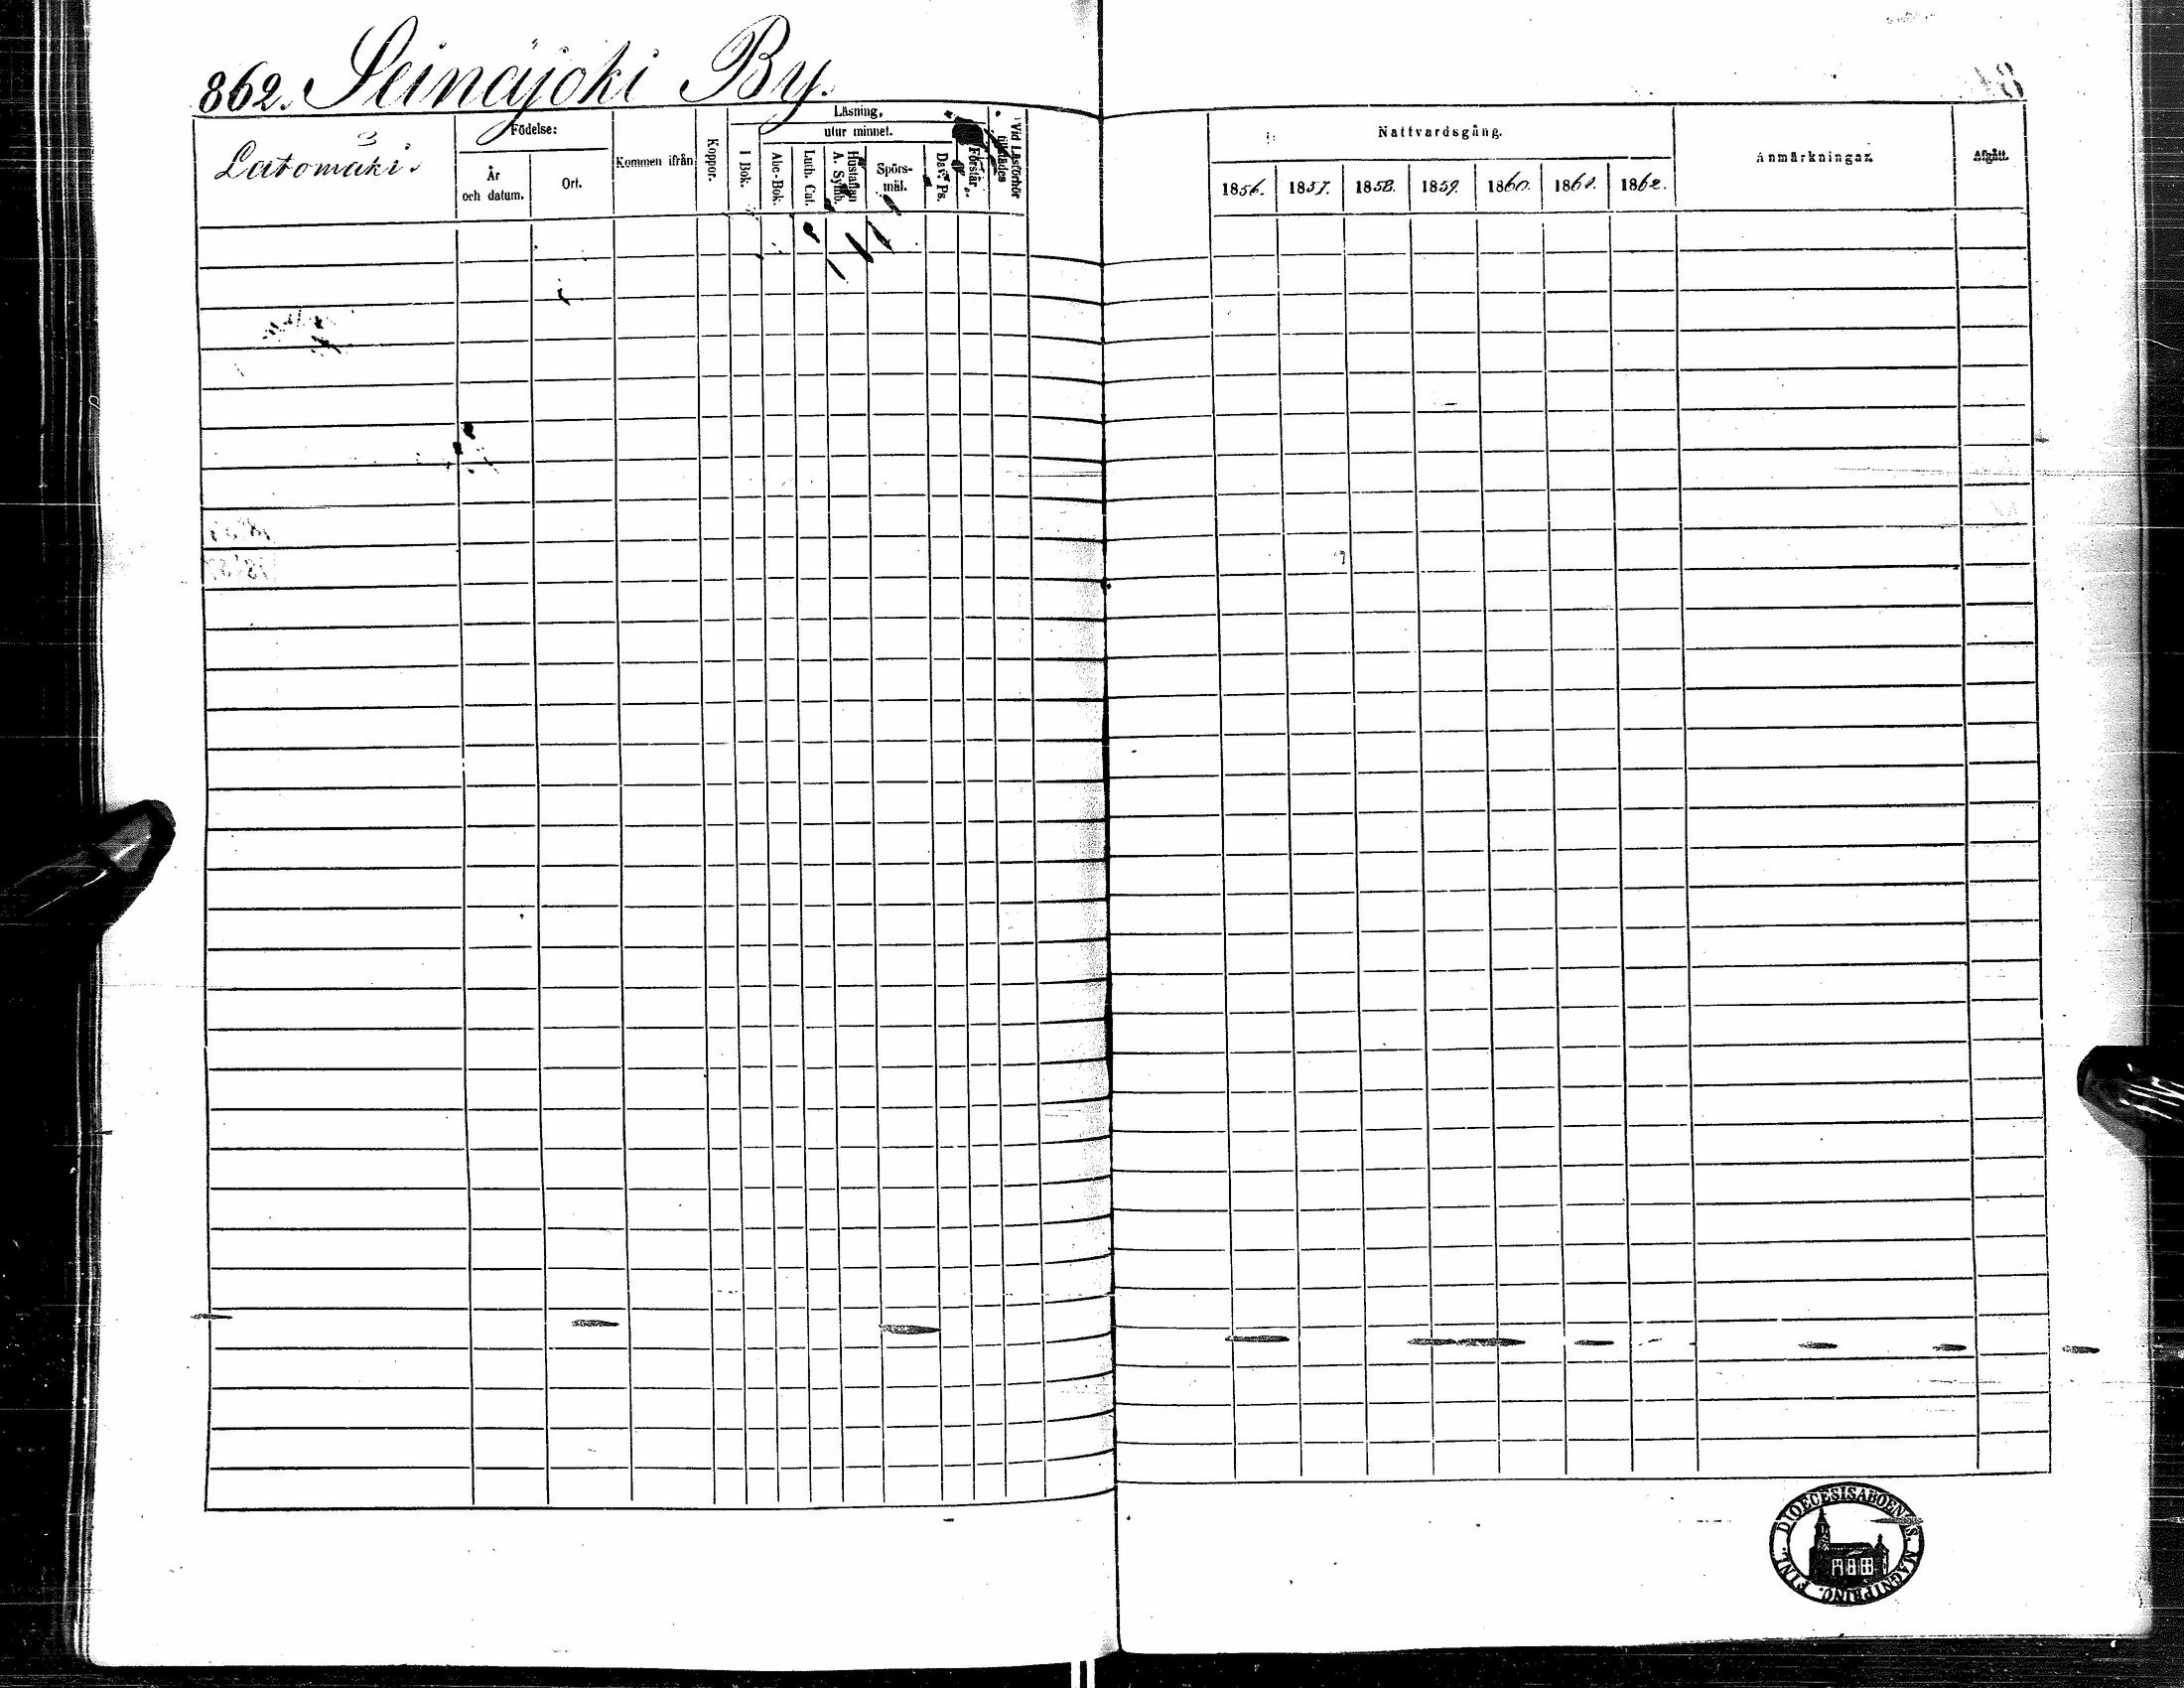 862. Seinäjoki By.
Latomäki.
Födelse:
År
och datum.
Ort.
Kommen ifrån
Koppor.
Läsning,
utur minnet.
I Bok.
Abc-Bok.
Luth. Cat.
Hustaflan
A. Symb.
Spörs-
mål.
Dav. Ps.
Förstår.
Vid Läsförhör
tillstädes
Nattvardsgång.
1856. 1857. 1858. 1859. 1860. 1861. 1862.
Anmärkningar.
Afgått.
DIOECESIS ABOENSIS. MAGNI PRINC. FINL.